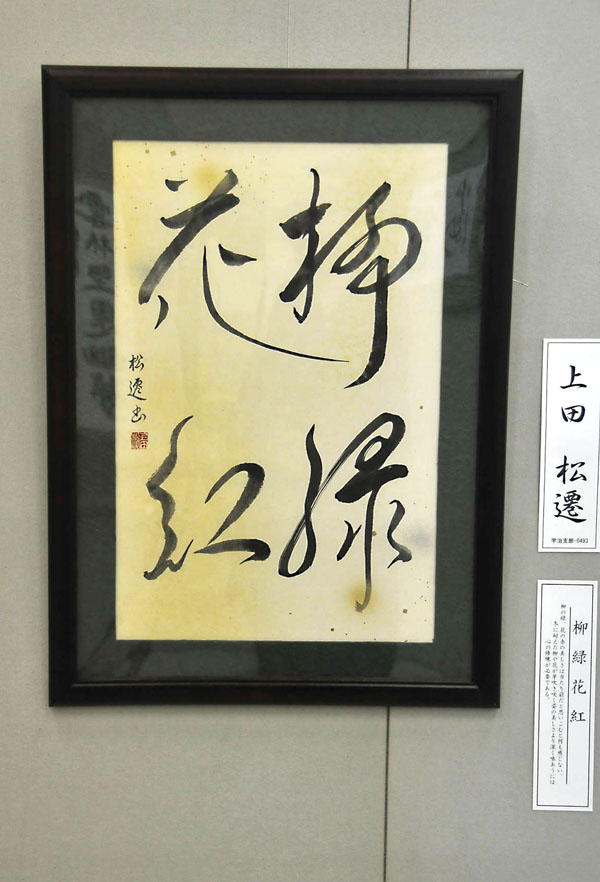 柳緑
花紅
松遷書
上田 松遷
宇治支部-0493
柳緑花紅
柳の緑、花の赤の美しさは当たり前だと思いこむと何も感じない。
冬に耐えた柳や花が芽吹き咲く姿の美しさより深く味あうには
心の修煉が必要である。